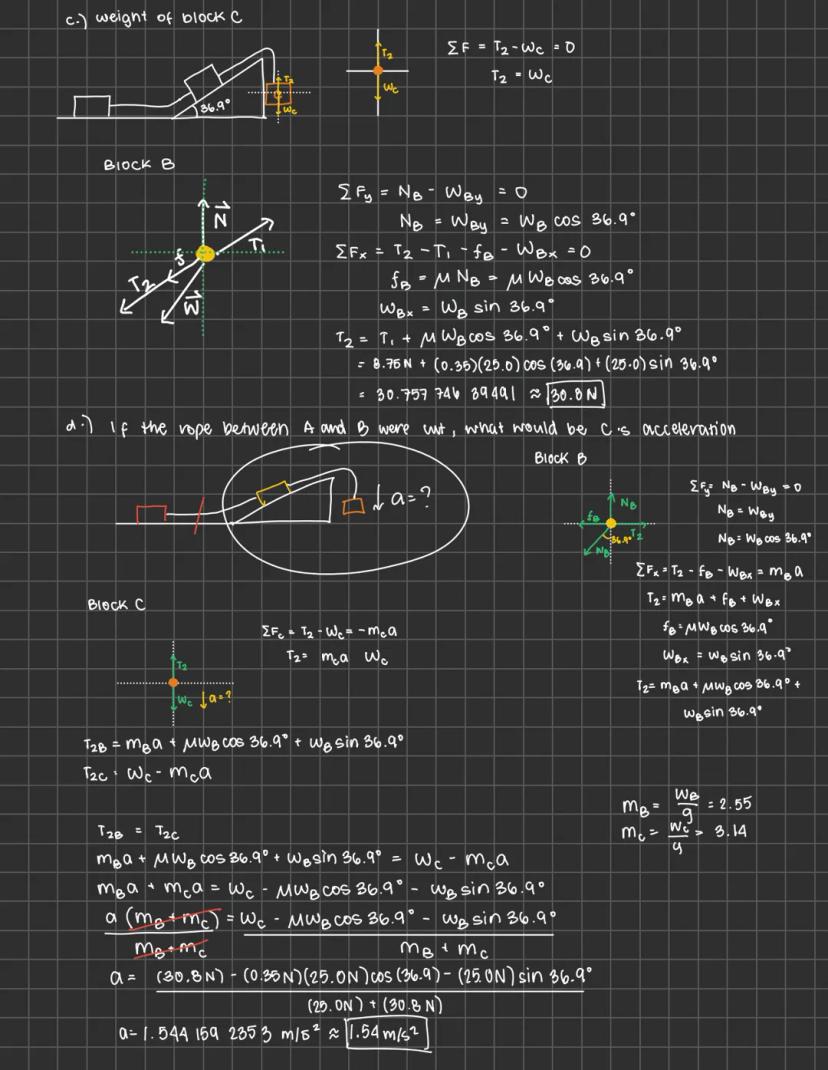 c.) weight of block C
ΣF = T₂ - Wc = 0
T₂ = Wc
T₂
Wc
T₂
Wc
36.9°
Block B
N⃗
T₁
f
T₂
W⃗
ΣFy = NB - WBy = 0
NB = WBy = WB cos 36.9°
ΣFx = T₂ - T₁ - fB - WBx = 0
fB = μ NB = μ WB cos 36.9°
WBx = WB sin 36.9°
T₂ = T₁ + μ WB cos 36.9° + WB sin 36.9°
= 8.75N + (0.35)(25.0) cos (36.9) + (25.0) sin 36.9°
= 30.757 746 39491 ≈ 30.8 N
d.) If the rope between A and B were cut, what would be C's acceleration
↓ a = ?
Block B
NB
fB
T₂
36.9°
WB
ΣFy = NB - WBy = 0
NB = WBy
NB = WB cos 36.9°
ΣFx = T₂ - fB - WBx = mB a
T₂ = mB a + fB + WBx
fB = μWB cos 36.9°
WBx = WB sin 36.9°
T₂ = mB a + μWB cos 36.9° +
WB sin 36.9°
Block C
T₂
Wc
↓ a = ?
ΣFc = T₂ - Wc = -mc a
T₂ = mca Wc
T₂B = mB a + μWB cos 36.9° + WB sin 36.9°
T₂C = Wc - mca
mB = WB/g = 2.55
mc = Wc/g = 3.14
T₂B = T₂C
mB a + μWB cos 36.9° + WB sin 36.9° = Wc - mca
mB a + mc a = Wc - μWB cos 36.9° - WB sin 36.9°
a (mB + mc) = Wc - μWB cos 36.9° - WB sin 36.9°
mB + mc mB + mc
a = (30.8N) - (0.35N)(25.0N) cos (36.9) - (25.0N) sin 36.9°
(25.0N) + (30.8N)
a = 1.544 159 2353 m/s² ≈ 1.54 m/s²